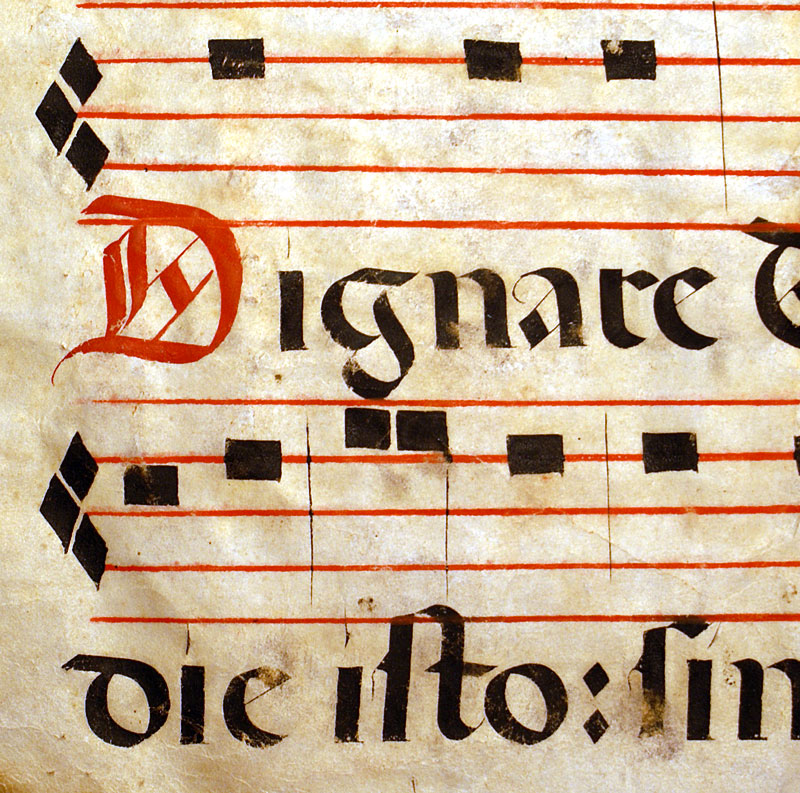 Dignare
die isto: sin